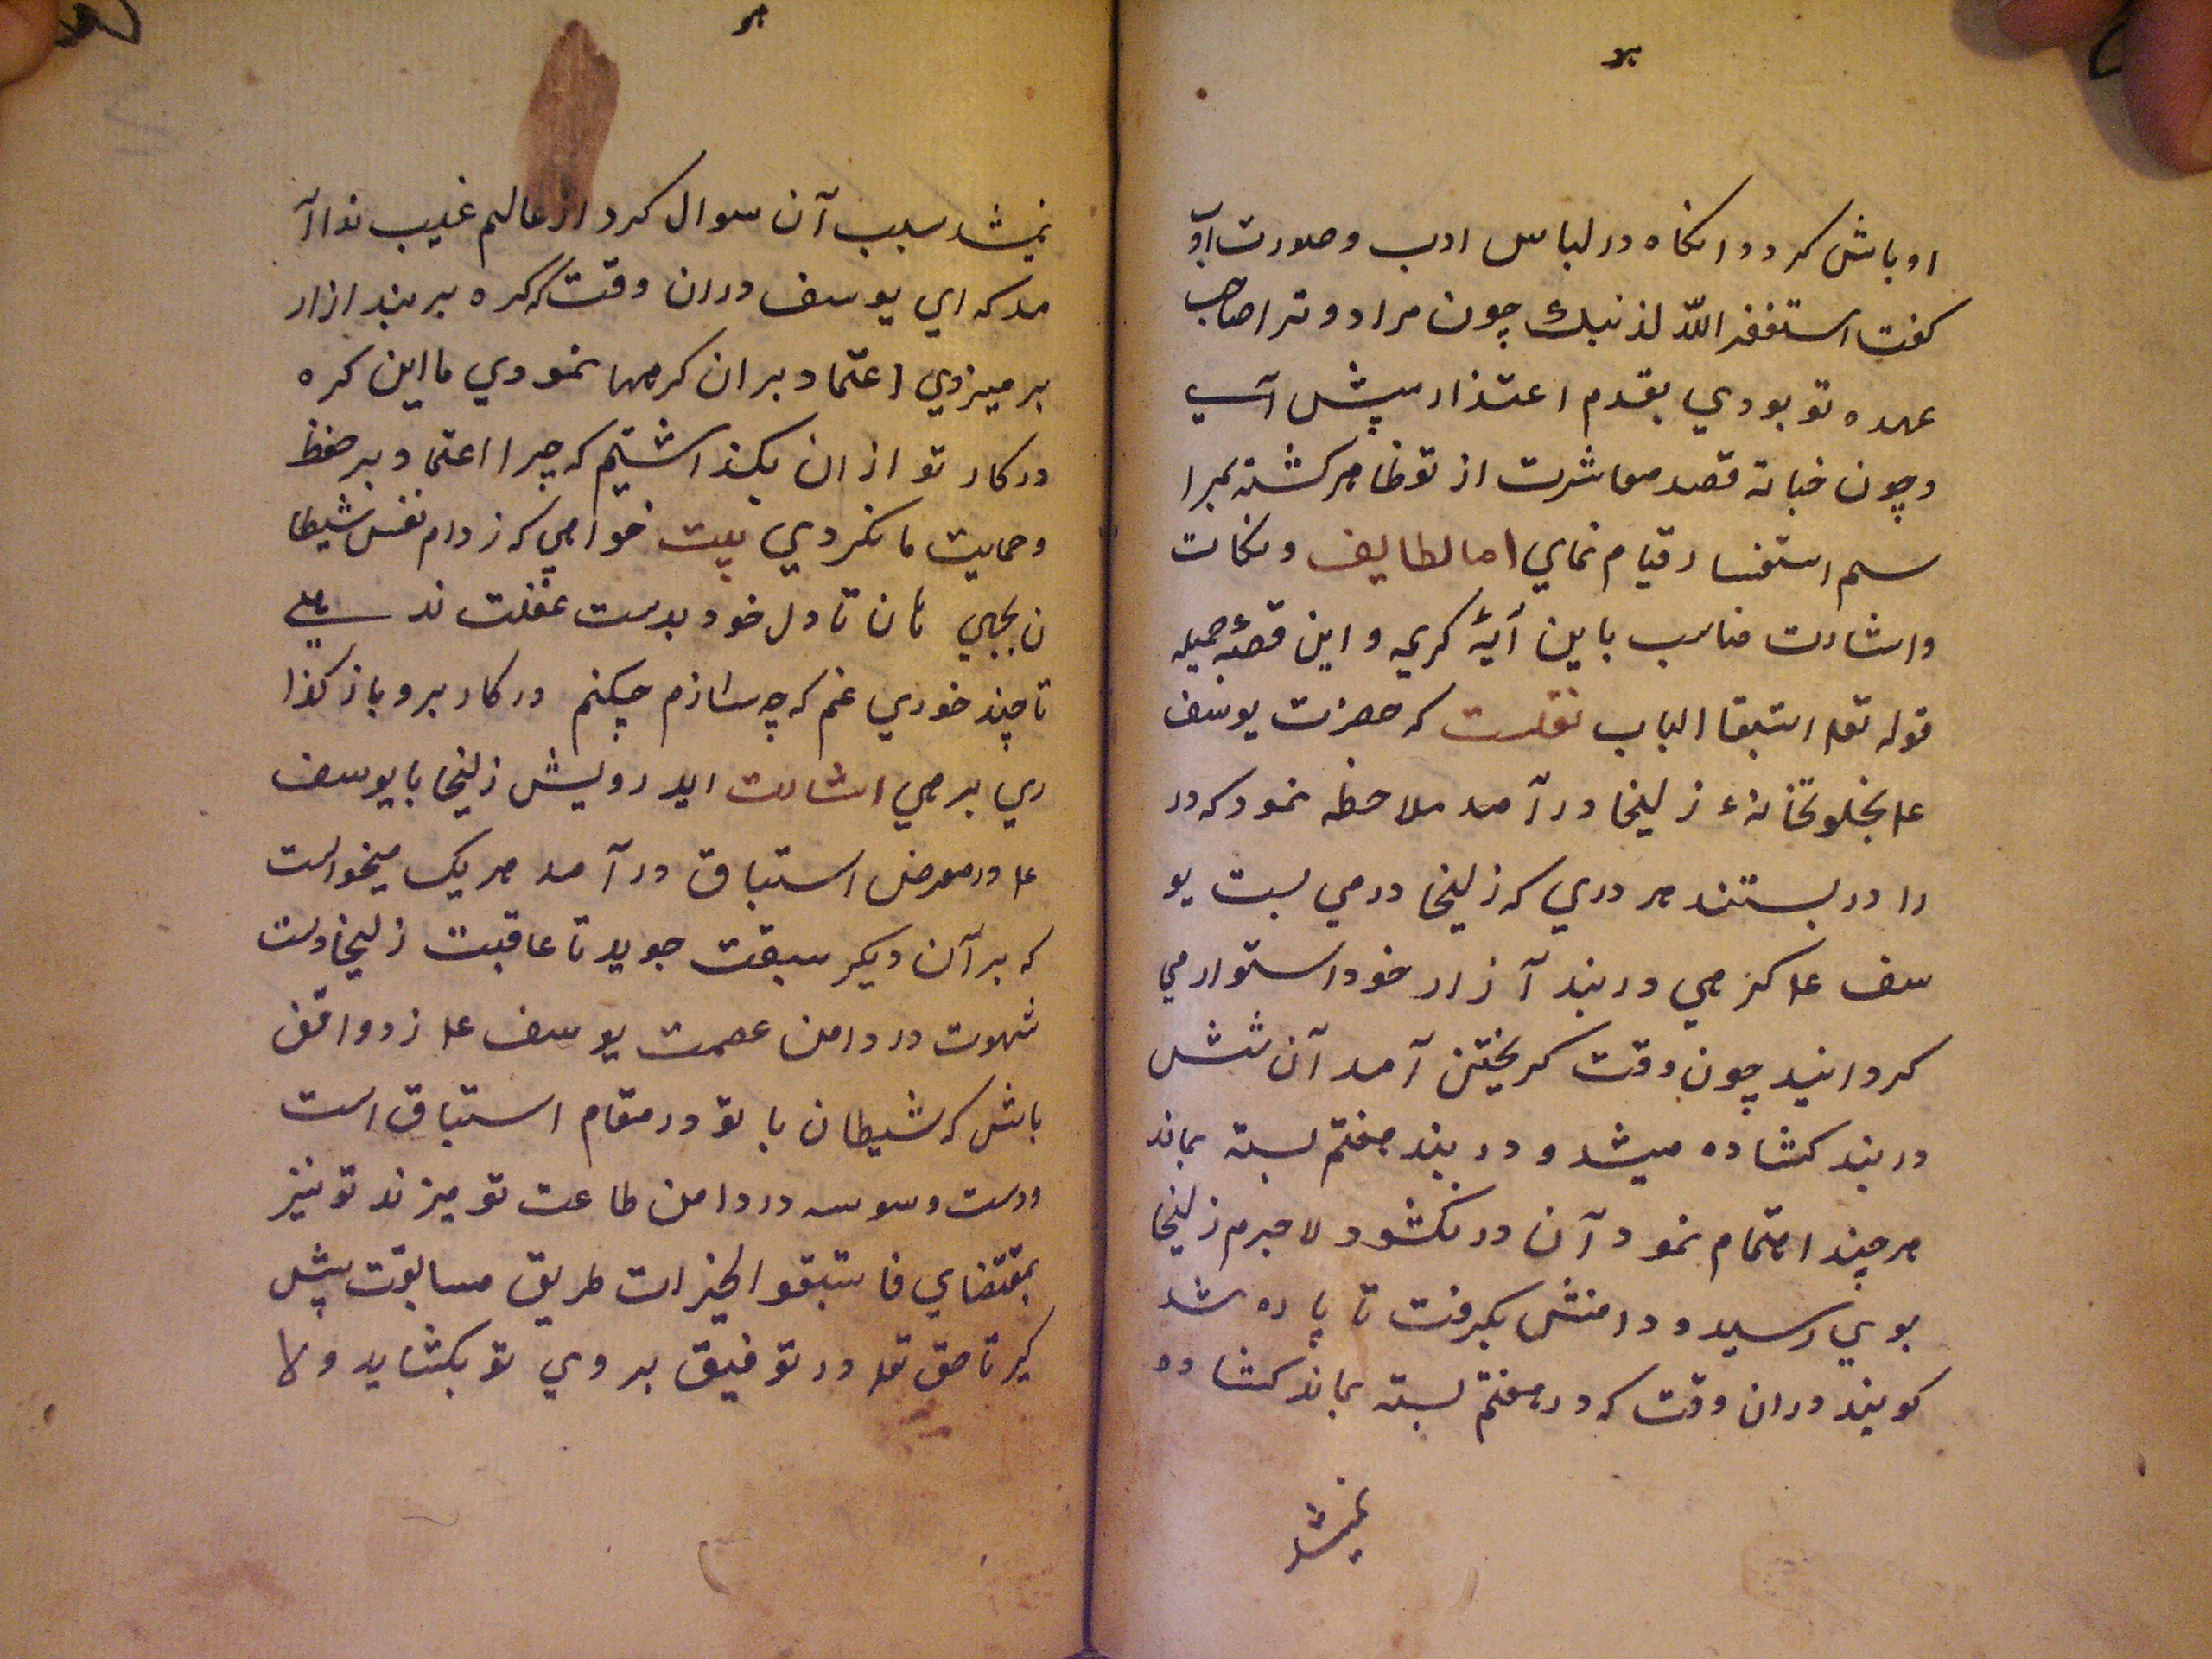 اوباش کرد و انکاه در لباس ادب و صورت او
کفت استغفر اللّه لذنبک چون مراد و ترا صاحب
عهده تو بودي بقدم اعتذار پیش آسي
و چون خبانه قصد معاشرت از تو ظاهر کشته بمرا
سم استغفار قیام نماي اما لطایف و نکات
و اشارت مناسب باین آیهٔ کریمه و این قصهٔ جمیله
قوله تعا استبقا الباب نقلست که حضرت یوسف
عا بخلوتخانهء زلیخا درآمد ملاحظه نمود که در
را در بستند هر دري که زلیخا درمي بست یو
سف عا کرهي در بند آزار خود استوار مي
کردانید چون وقت کریختن آمد آن شش
در بند کشاده میشد و در بند هفتم بسته بماند
هر چند اهتمام نمود آن در نکشود لاجرم زلیخا
بوي رسید و دامنش بکرفت تا پاره شد
کویند دران وقت که در هفتم بسته بماند کشاده
نمیشد
نمیشد سبب آن سوال کرد از عالم غیب ندا آ
مد که اي یوسف دران وقت که کره بر بند ازار
بر میزدي اعتماد بران کرهها نمودي ما این کره
در کار تو ازان بکذاشتیم که چرا اعتماد بر حفظ
و حمایت ما نکردي بیت خواهي که ز دام نفس شیطا
ن بجهي هان تا دل خود بدست غفلت ند هي
تا چند خوري غم که چه سازم چکنم در کار برو باز کذا
ري برهي اشارت اید رویش زلیخا با یوسف
عا در معرض استباق درآمد هر یک میخواست
که بر آن دیکر سبقت جوید تا عاقبت زلیخا دست
شهوت در دامن عصمت یوسف عا زد واقف
باش که شیطان با تو در مقام استباق است
و دست وسوسه در دامن طاعت تو میزند تو نیز
بمقتضاي فاستبقوا الخیرات طریق مسابقت پیش
کیر تا حق تعا در توفیق بروي تو بکشاید و لا